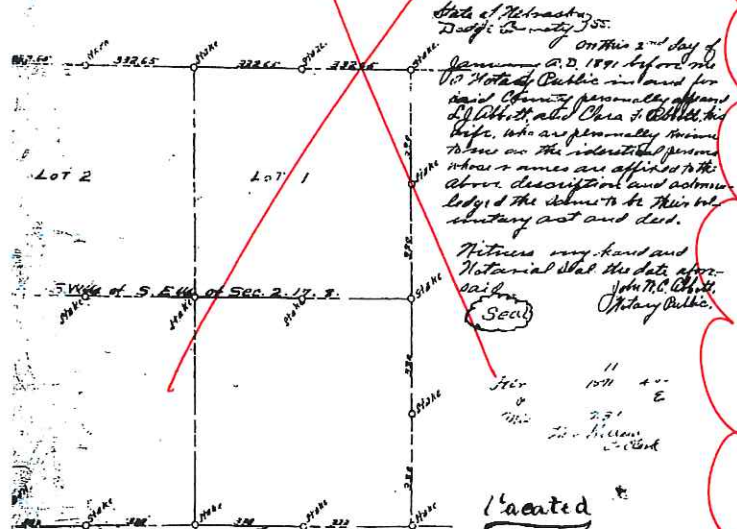 State of Nebraska
Dodge County } SS.
On this 2nd day of
January A.D. 1891 before me
a Notary Public in and for
said County personally appeared
L.J. Abbott and Clara F. Abbott his
wife, who are personally known
to me as the identical persons
whose names are affixed to the
above description and acknow-
ledged the same to be their vol-
untary act and deed.
Witness my hand and
Notarial Seal the date afore-
said
John N.C. Abbott
Notary Public.
Seal
332.65 332.65 332.65
Stake Stake Stake
LOT 2 LOT 1
Stake
330
330
SW¼ of S.E¼ of Sec. 2. 17. 8.
Stake Stake Stake Stake
330
Stake
330
Stake Stake Stake Stake
Vacated